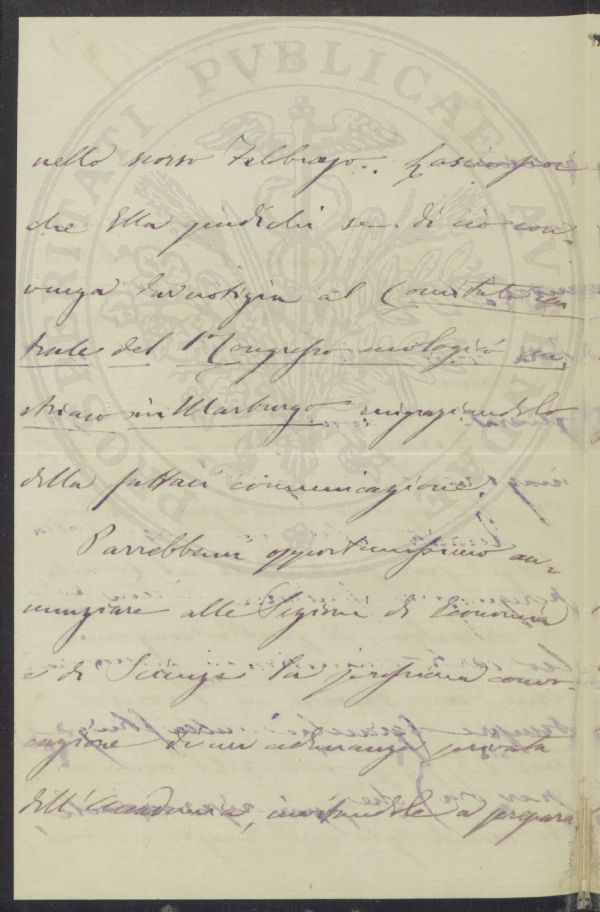 nello scorso Febbrajo. Lascio poi
che Ella giudichi se di ciò con-
venga dar notizia al Comitato cen-
trale del 1º Congresso enologico au-
striaco in Marburgo ringraziandolo
della fattaci comunicazione.
Parrebbemi opportunissimo an-
nunziare alle Sezioni di Economia
e di Scienze la prossima convo-
cazione di un adunanza privata
dell'Accademia, invitandole a prepara